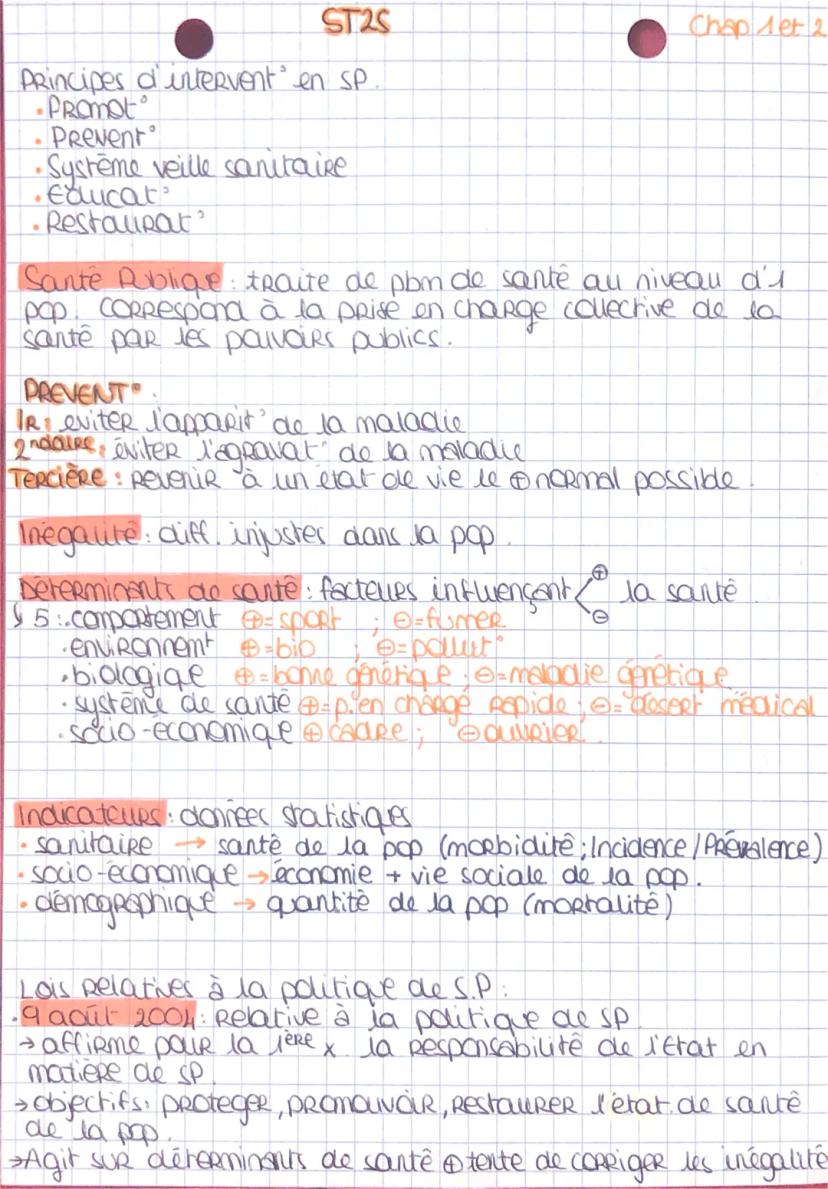 ST2S
Chap 1 et 2
Principes d'intervent° en SP.
• Promot°
• Prevent°
• Système veille sanitaire
• Educat°
• Restaurat°
Santé Publique : traite de pbm de santé au niveau d'1
pop. Correspond à la prise en charge collective de la
santé par les pouvoirs publics.
PREVENT° :
IR : eviter l'apparit° de la maladie
2ndaire : éviter l'agravat° de la maladie
Tercière : Revenir à un état de vie le ⊕ normal possible.
Inégalité : diff. injustes dans la pop.
Déterminants de santé : facteurs influençant < ⊕ ⊖ la santé
↳ 5 : • comportement ⊕= sport ; ⊖= fumer
• environnemt ⊕= bio ; ⊖= pollut°
• biologique ⊕= bonne génétique ; ⊖= maladie génétique
• système de santé ⊕= p. en charge rapide ; ⊖= désert médical
• socio-économique ⊕ cadre ; ⊖ ouvrier.
Indicateurs : données statistiques
• sanitaire → santé de la pop (morbidité ; Incidence / Prévalence)
• socio-économique → économie + vie sociale de la pop.
• démographique → quantité de la pop (mortalité)
Lois Relatives à la politique de S.P :
• 9 août 2004 : Relative à la politique de SP
→ affirme pour la 1ère x la responsabilité de l'Etat en
matière de SP.
→ objectifs : proteger, promouvoir, restaurer l'état de santé
de la pop.
→ Agit sur déterminants de santé ⊕ tente de corriger les inégalité